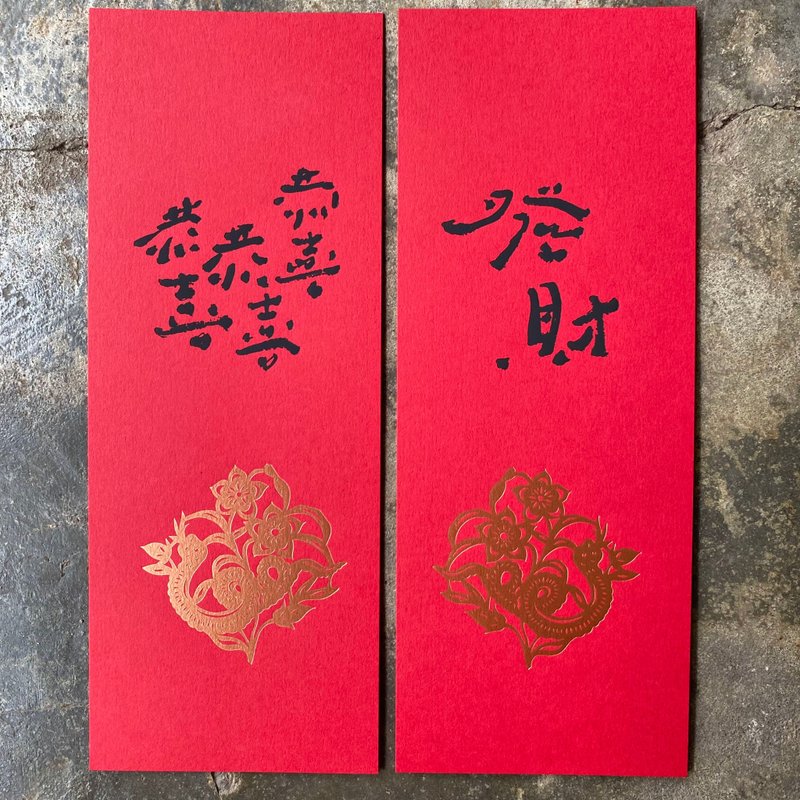 恭喜
恭喜
恭喜
發財